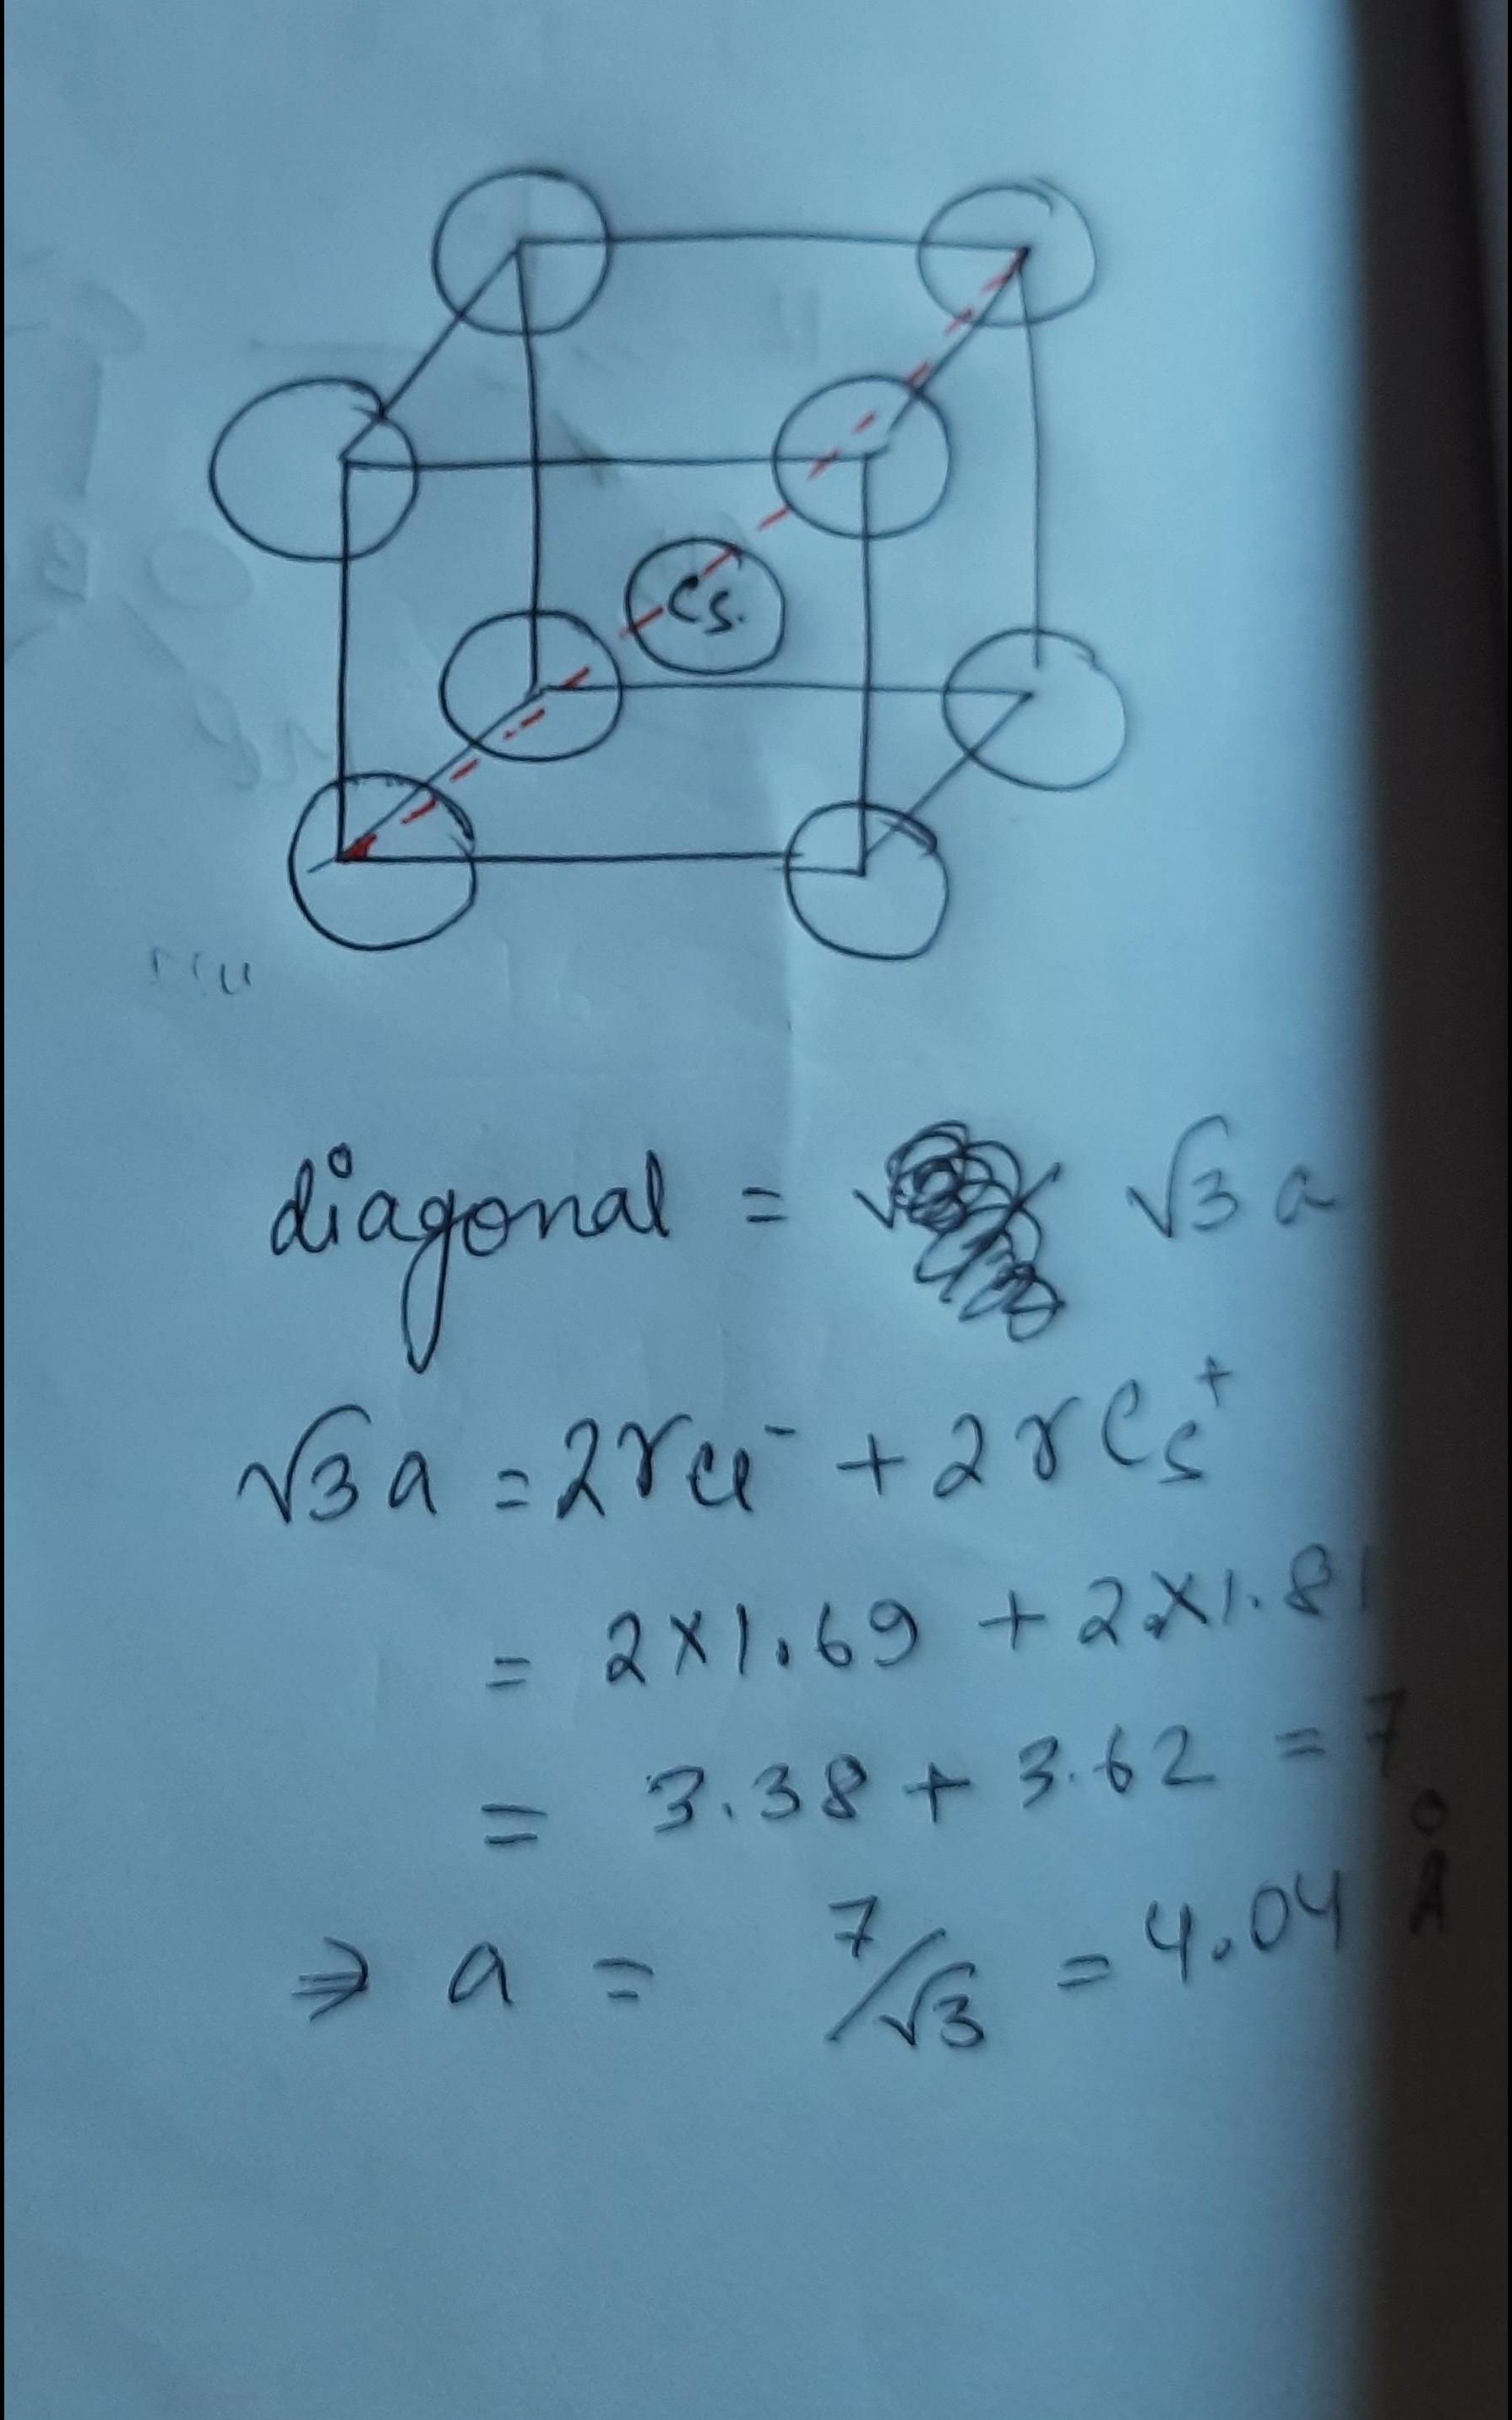 Cs.
diagonal = √3 a
√3 a = 2rcl⁻ + 2rCs⁺
= 2×1.69 + 2×1.81
= 3.38 + 3.62 = 7
⇒ a = 7/√3 = 4.04 Å